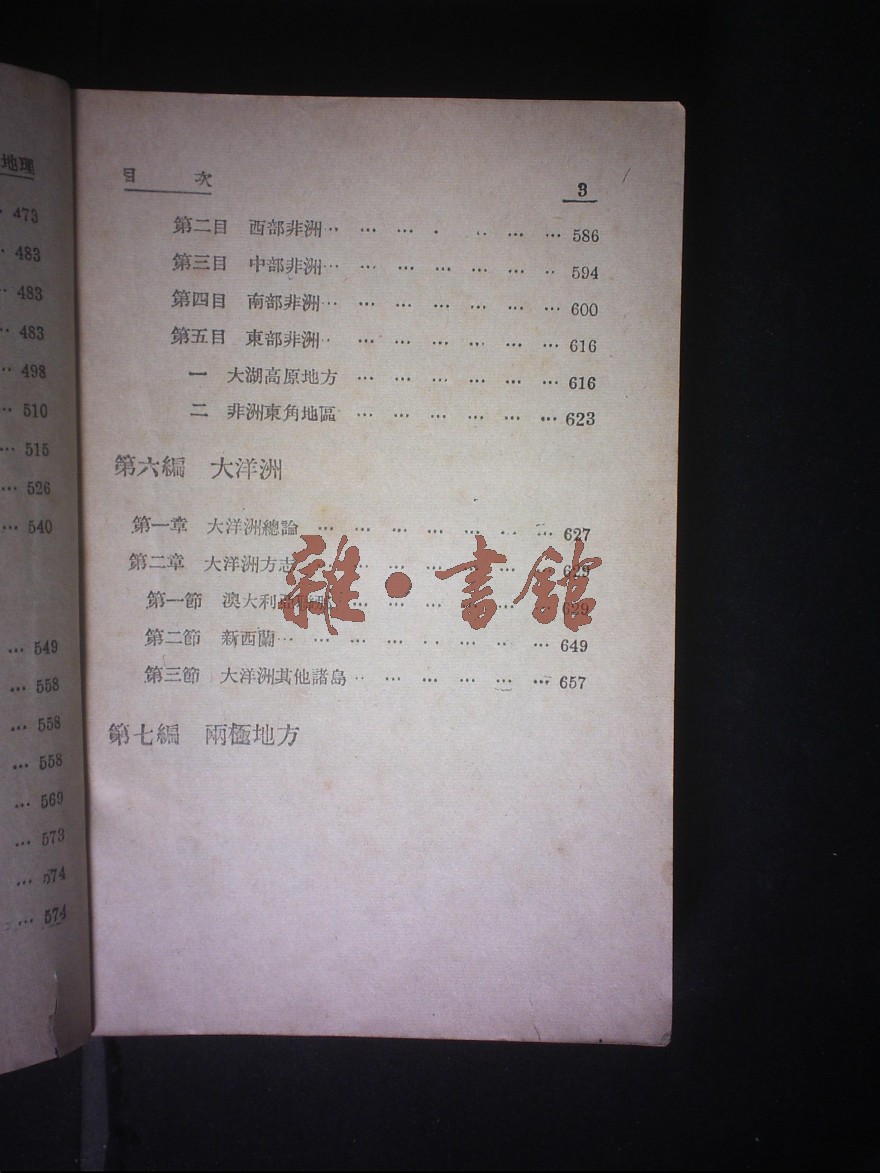 地理
473
483
483
483
498
510
515
526
540
549
558
558
558
569
573
574
574
目 次 3
第二目 西部非洲 … … … … … … … 586
第三目 中部非洲 … … … … … … … 594
第四目 南部非洲 … … … … … … … 600
第五目 東部非洲 … … … … … … … 616
一 大湖高原地方 … … … … … … 616
二 非洲東角地區 … … … … … … 623
第六編 大洋洲
第一章 大洋洲總論 … … … … … … … 627
第二章 大洋洲方志 … … … … … … 629
第一節 澳大利亞聯邦 … … … … … … 629
第二節 新西蘭 … … … … … … … … 649
第三節 大洋洲其他諸島 … … … … … … 657
第七編 兩極地方
雜·書館